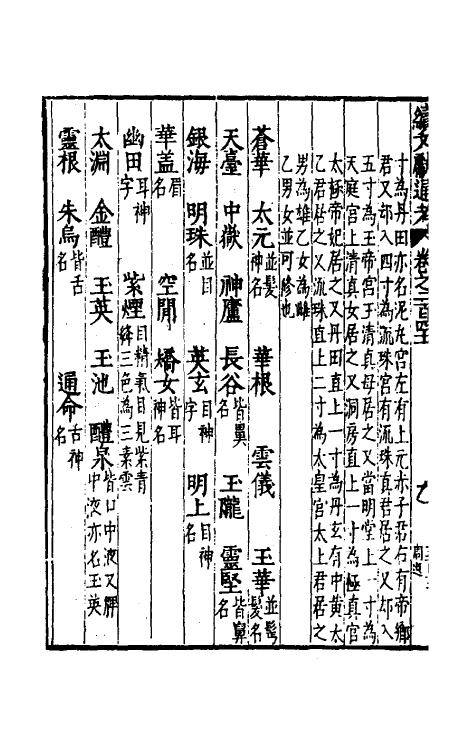 續文獻通考 卷之二百
九
寸為丹田亦名泥丸宫左有上元赤子君右有帝鄉
君又却入四寸為流珠宫有流珠真君居之又却入
五寸為玉帝宫玉清真母居之又當明堂上一寸為
天庭宫上清真女居之又洞房直上一寸為極真宫
太極帝妃居之又丹田直上一寸為丹玄有中黄太
乙君居之又流珠直上二寸為太皇宫太上君居之
男為雄乙女為雌
乙男女並可修也
蒼華 太元並髮神名 華根 雲儀 玉華並髩髮名
天臺 中嶽 神廬 長谷皆鼻名 玉隴 靈堅皆鼻名
銀海 明珠並目名 英玄目神字 明上目神名
華盖眉名 空閒 嬌女皆耳名
幽田耳神字 紫煙目精氣目見紫青絳三色為三素雲
太淵 金醴 玉英 玉池 醴泉皆口中液又中液亦名玉英
靈根 朱鳥皆舌名 通命舌神名